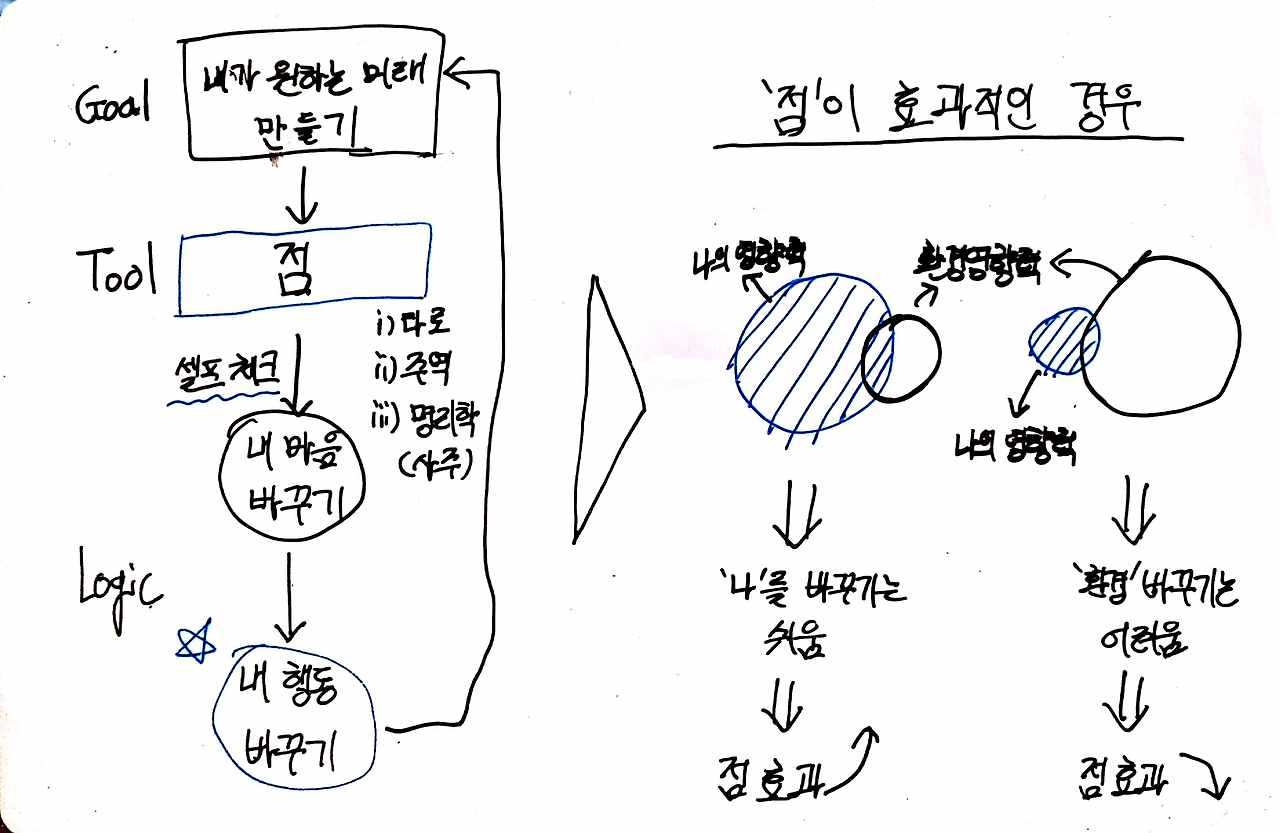 Goal
내가 원하는 미래
만들기
Tool
점
i) 타로
ii) 주역
iii) 명리학
(사주)
셀프체크
내 마음
바꾸기
Logic
내 행동
바꾸기
'점'이 효과적인 경우
나의 영향력
환경영향력
나의 영향력
'나'를 바꾸기는
쉬움
점효과
'환경'바꾸기는
어려움
점효과